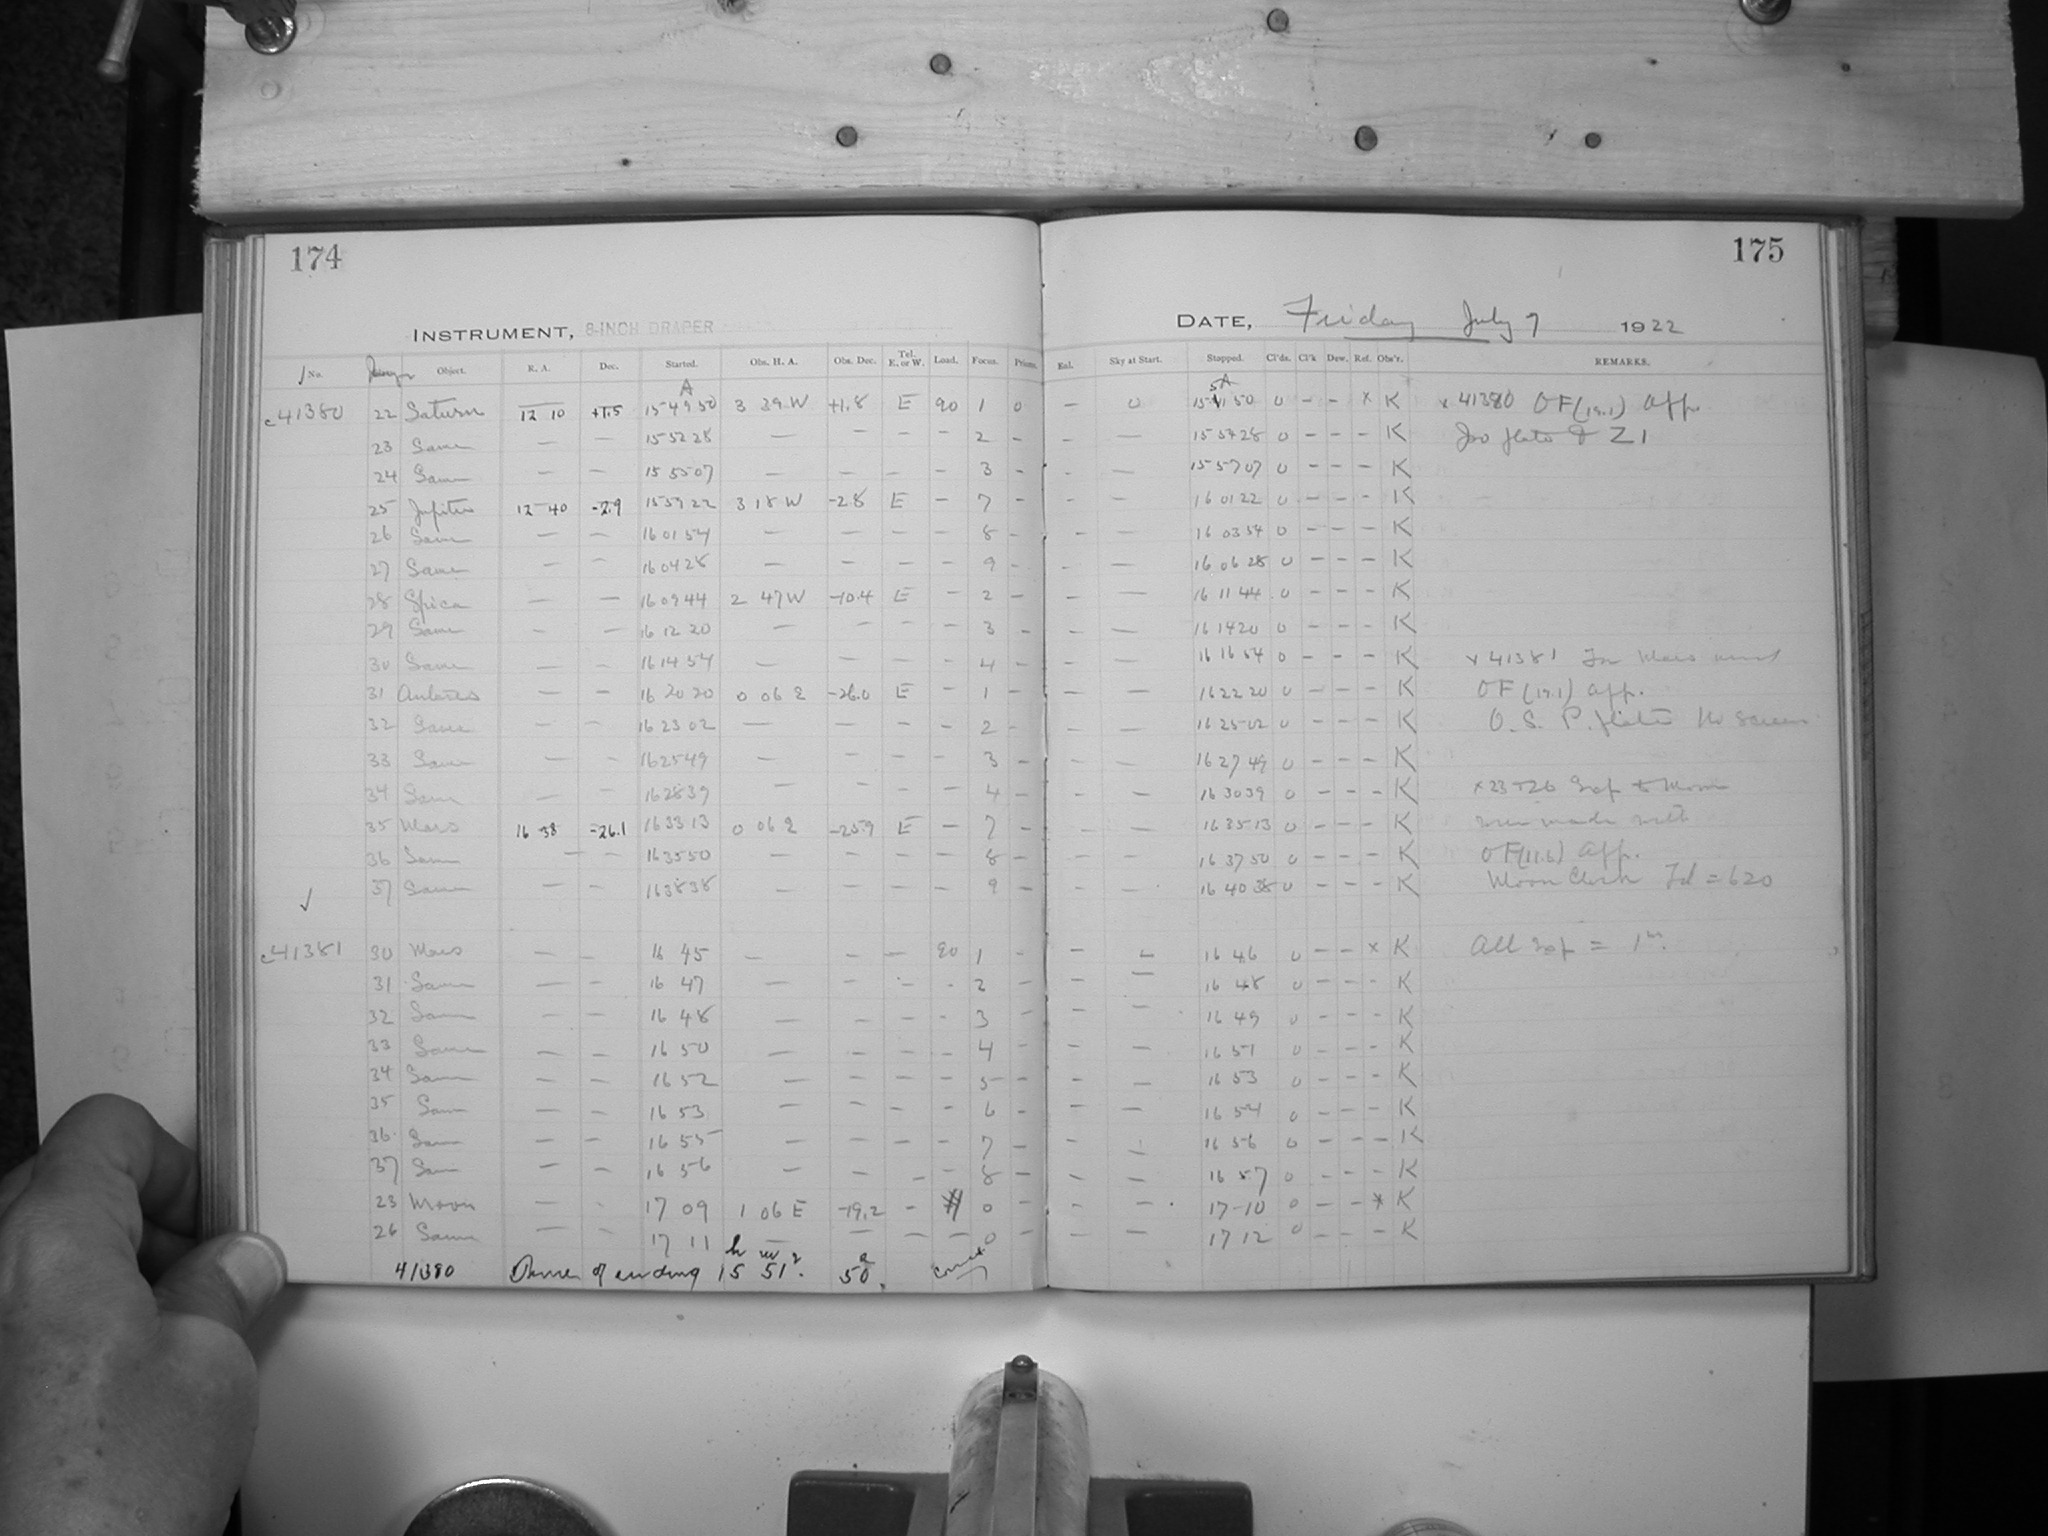 174
INSTRUMENT, 8-INCH DRAPER
No. Object. R. A. Dec. Started. Obs. H. A. Obs. Dec. Tel. E. or W. Load. Focus. Prisms.
A
c41380 22 Saturn 12 10 +1.5 15 49 50 3 39 W +1.8 E 90 1 0
23 Same — — 15 52 28 — — — — 2 –
24 Same — — 15 55 07 — — — — 3 –
25 Jupiter 12 40 -2.9 15 59 22 3 18 W -2.8 E – 7 –
26 Same — — 16 01 54 — — — — 8 –
27 Same — — 16 04 28 — — — — 9 –
28 Spica — — 16 09 44 2 47 W -10.4 E – 2 –
29 Same — — 16 12 20 — — — — 3 –
30 Same — — 16 14 54 — — — — 4 –
31 Antares — — 16 20 20 0 06 E -26.0 E – 1 –
32 Same — — 16 23 02 — — — — 2 –
33 Same — — 16 25 49 — — — — 3 –
34 Same — — 16 28 39 — — — — 4 –
35 Mars 16 38 -26.1 16 33 13 0 06 E -25.9 E – 7 –
36 Same — — 16 35 50 — — — — 8 –
37 Same — — 16 38 38 — — — — 9 –
✓
c41381 30 Mars — — 16 45 — — — 90 1 –
31 Same — — 16 47 — — — — 2 –
32 Same — — 16 48 — — — — 3 –
33 Same — — 16 50 — — — — 4 –
34 Same — — 16 52 — — — — 5 –
35 Same — — 16 53 — — — — 6 –
36 Same — — 16 55 — — — — 7 –
37 Same — — 16 56 — — — — 8 –
23 Moon — — 17 09 1 06 E -19.2 – 0 –
26 Same — — 17 11 — — — — 0
41380 of ending 15h 51m. 50s.
175
DATE, Friday July 7 1922
Enl. Sky at Start. Stopped. Cl'ds. Cl'k Dew. Ref. Obs'r. REMARKS.
A
– 0 15 51 50 0 – – x K x 41380 OF (19.1) App.
– — 15 54 28 0 – – – K Iso plate Z1
– — 15 57 07 0 – – – K
– — 16 01 22 0 – – – K
– — 16 03 54 0 – – – K
– — 16 06 28 0 – – – K
– — 16 11 44 0 – – – K
– — 16 14 20 0 – – – K
– — 16 16 54 0 – – – K x 41381 For Mars
– — 16 22 20 0 – – – K OF (19.1) App.
– — 16 25 02 0 – – – K O. S. P. plate No Screen
– — 16 27 49 0 – – – K
– — 16 30 39 0 – – – K x 23 + 26 Exp to Moon
– — 16 35 13 0 – – – K were made with
– — 16 37 50 0 – – – K OF(11.6) App.
– — 16 40 38 0 – – – K Moon Clock = 620
– – 16 46 0 – – x K All Exp = 1m.
– — 16 48 0 – – – K
– — 16 49 0 – – – K
– — 16 51 0 – – – K
– — 16 53 0 – – – K
– — 16 54 0 – – – K
– — 16 56 0 – – – K
– — 16 57 0 – – – K
– — 17 10 0 – – * K
– — 17 12 0 – – – K